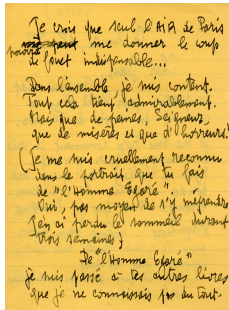 Je crois que seul l'AIR de Paris
pourra me donner le coup
de fouet indispensable...
Dans l'ensemble, je suis content.
Tout cela tient admirablement.
Mais que de peines, Seigneur,
que de misères et que d'horreurs!
(Je me suis cruellement reconnu
dans le portrait que tu fais
de "l'Homme Egaré".
Oui, pas moyen de s'y méprendre
J'en ai perdu le sommeil durant
trois semaines)
De "l'Homme Egaré"
je suis passé à tes autres livres
que je ne connaissais pas du tout.